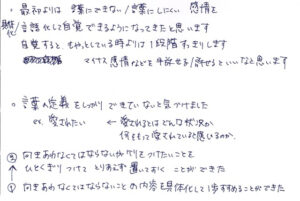 ・最初よりは 言葉にできない/言葉にしにくい 感情を
具体化/言語化して自覚できるようになってきたと思います
自覚すると、もやっとしている時よりは1段階すっきりします
マイナス感情などを手放せる/許せるといいなと思います
○言葉の定義をしっかりできていないと気づけました
ex. 愛されたい ← 愛されてるとはどんな状況か
何をもって愛されていると感じるのか、
② 向きあわなくてはならないやケリをつけたいことを
↑ ひとくぎりつけて とりあえず 置いておくことができた
① 向きあわなくてはならないことの内容を具体化して1歩すすめることができた